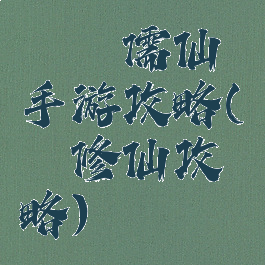 儒仙
手游攻略(
修仙攻
略)